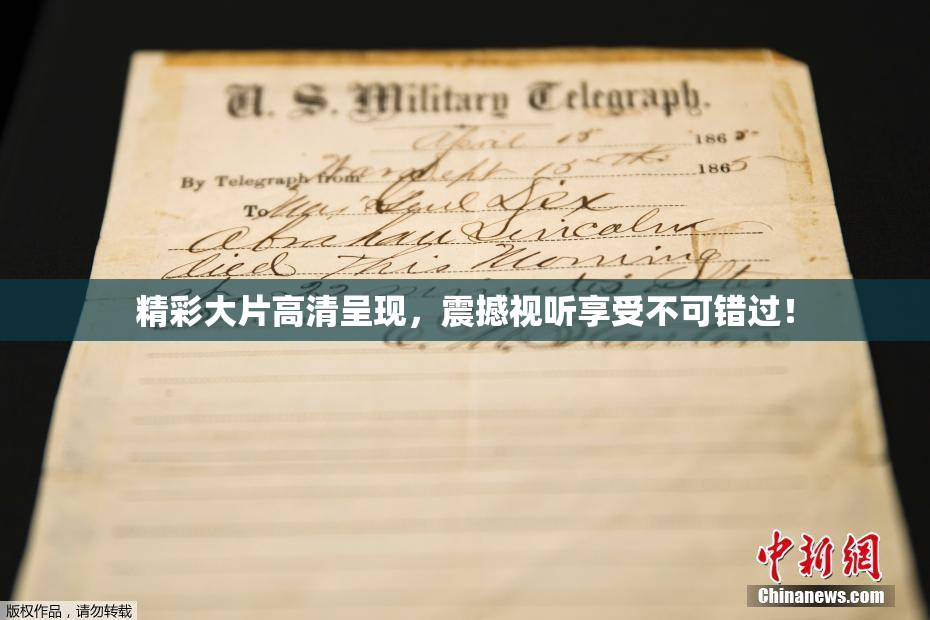 U. S. Military Telegraph.
April 15 1865-
By Telegraph from War Dept 15th 1865
To Maj Genl Dix
Abraham Lincoln
died This Morning
22 minutes after
精彩大片高清呈现，震撼视听享受不可错过！
E. M. Stanton
中新網
Chinanews.com
版权作品，请勿转载